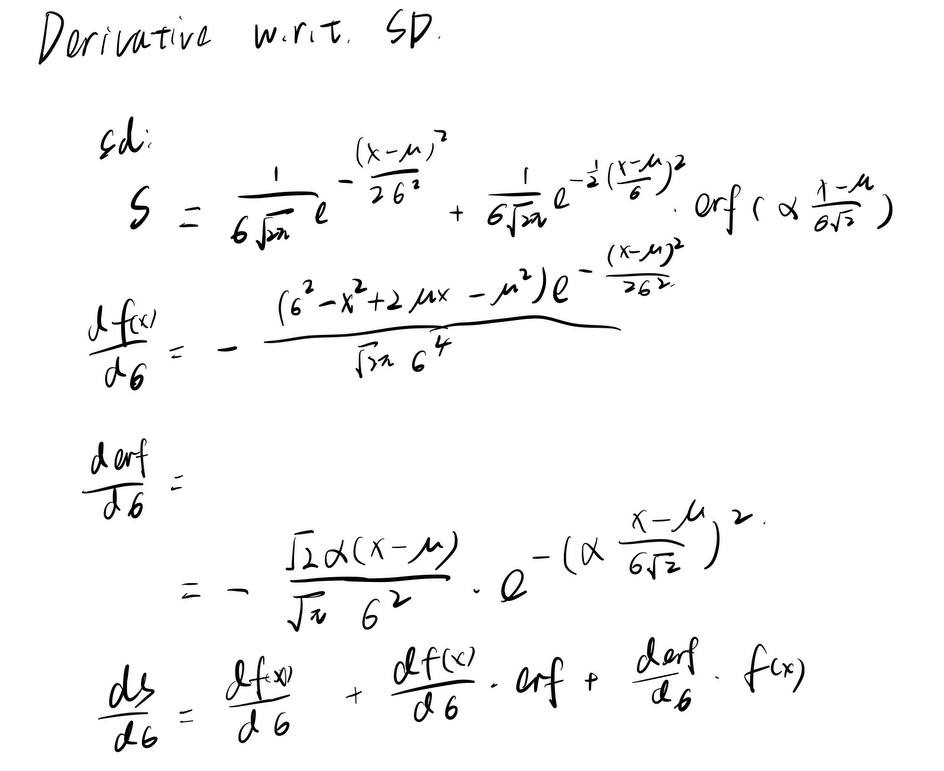 Derivative w.r.t. SD.
sd:
S = \frac{1}{6\sqrt{2π}} e^{-\frac{(x-μ)^2}{26^2}} + \frac{1}{6\sqrt{2π}} e^{-\frac{1}{2}(\frac{x-μ}{6})^2} · erf(α \frac{x-μ}{6\sqrt{2}})
\frac{df(x)}{d6} = - \frac{(6^2-x^2+2μx-μ^2)e^{-\frac{(x-μ)^2}{26^2}}}{\sqrt{2π} 6^4}
\frac{d erf}{d6} =
= - \frac{\sqrt{2}α(x-μ)}{\sqrt{π} 6^2} · e^{-(α \frac{x-μ}{6\sqrt{2}})^2}.
\frac{ds}{d6} = \frac{df(x)}{d6} + \frac{df(x)}{d6} · erf + \frac{derf}{d6} · f(x)